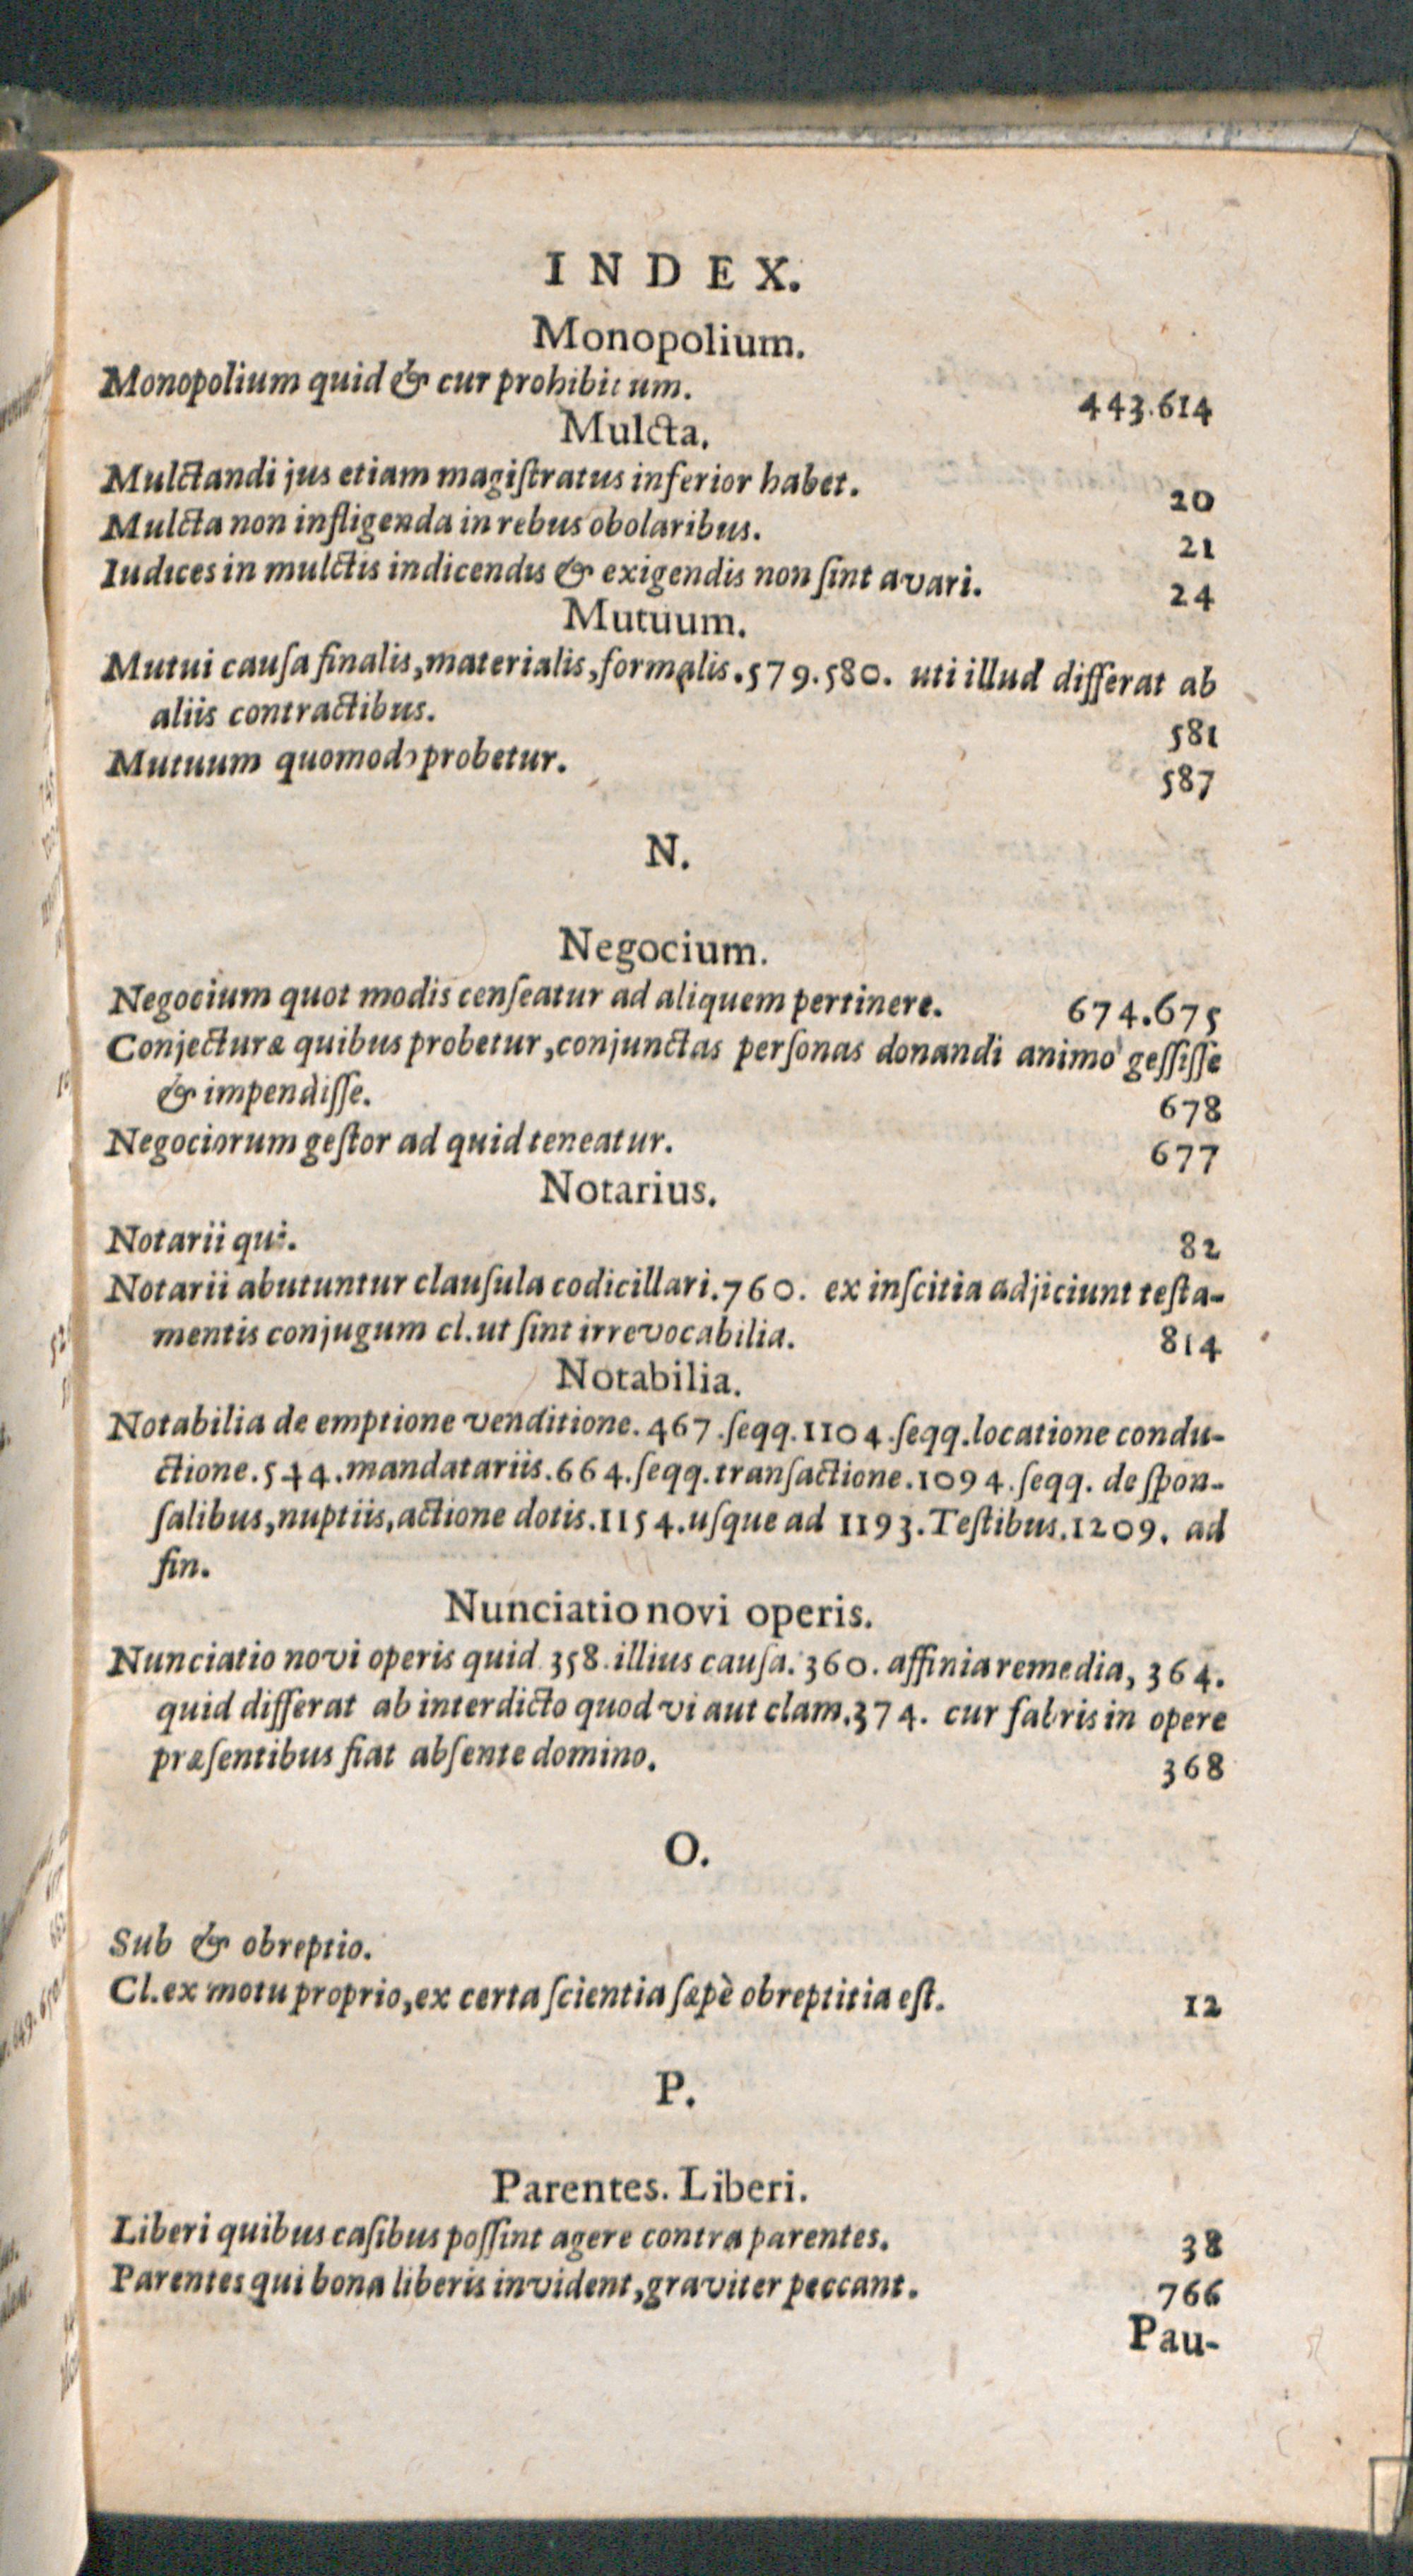 INDEX.
Monopolium.
Monopolium quid & cur prohibitum. 443.614
Mulcta.
Mulctandi jus etiam magiſtratus inferior habet. 20
Mulcta non infligenda in rebus obolaribus. 21
Iudices in mulctis indicendis & exigendis non ſint avari. 24
Mutuum.
Mutui cauſa finalis, materialis, formalis. 579. 580. uti illud differat ab
aliis contractibus. 581
Mutuum quomodo probetur. 587
N.
Negocium.
Negocium quot modis cenſeatur ad aliquem pertinere. 674.675
Conjecturæ quibus probetur, conjunctas perſonas donandi animo geſſiſſe
& impendiſſe. 678
Negociorum geſtor ad quid teneatur. 677
Notarius.
Notarii qui. 82
Notarii abutuntur clauſula codicillari. 760. ex inſcitia adjiciunt teſta-
mentis conjugum cl. ut ſint irrevocabilia. 814
Notabilia.
Notabilia de emptione venditione. 467. ſeqq. 1104. ſeqq. locatione condu-
ctione. 544. mandatariis. 664. ſeqq. tranſactione. 1094. ſeqq. de ſpon-
ſalibus, nuptiis, actione dotis. 1154. uſque ad 1193. Teſtibus. 1209. ad
fin.
Nunciatio novi operis.
Nunciatio novi operis quid 358. illius cauſa. 360. affinia remedia, 364.
quid differat ab interdicto quod vi aut clam. 374. cur fabris in opere
præſentibus fiat abſente domino. 368
O.
Sub & obreptio.
Cl. ex motu proprio, ex certa ſcientia ſæpè obreptitia eſt. 12
P.
Parentes. Liberi.
Liberi quibus caſibus poſſint agere contra parentes. 38
Parentes qui bona liberis invident, graviter peccant. 766
Pau-